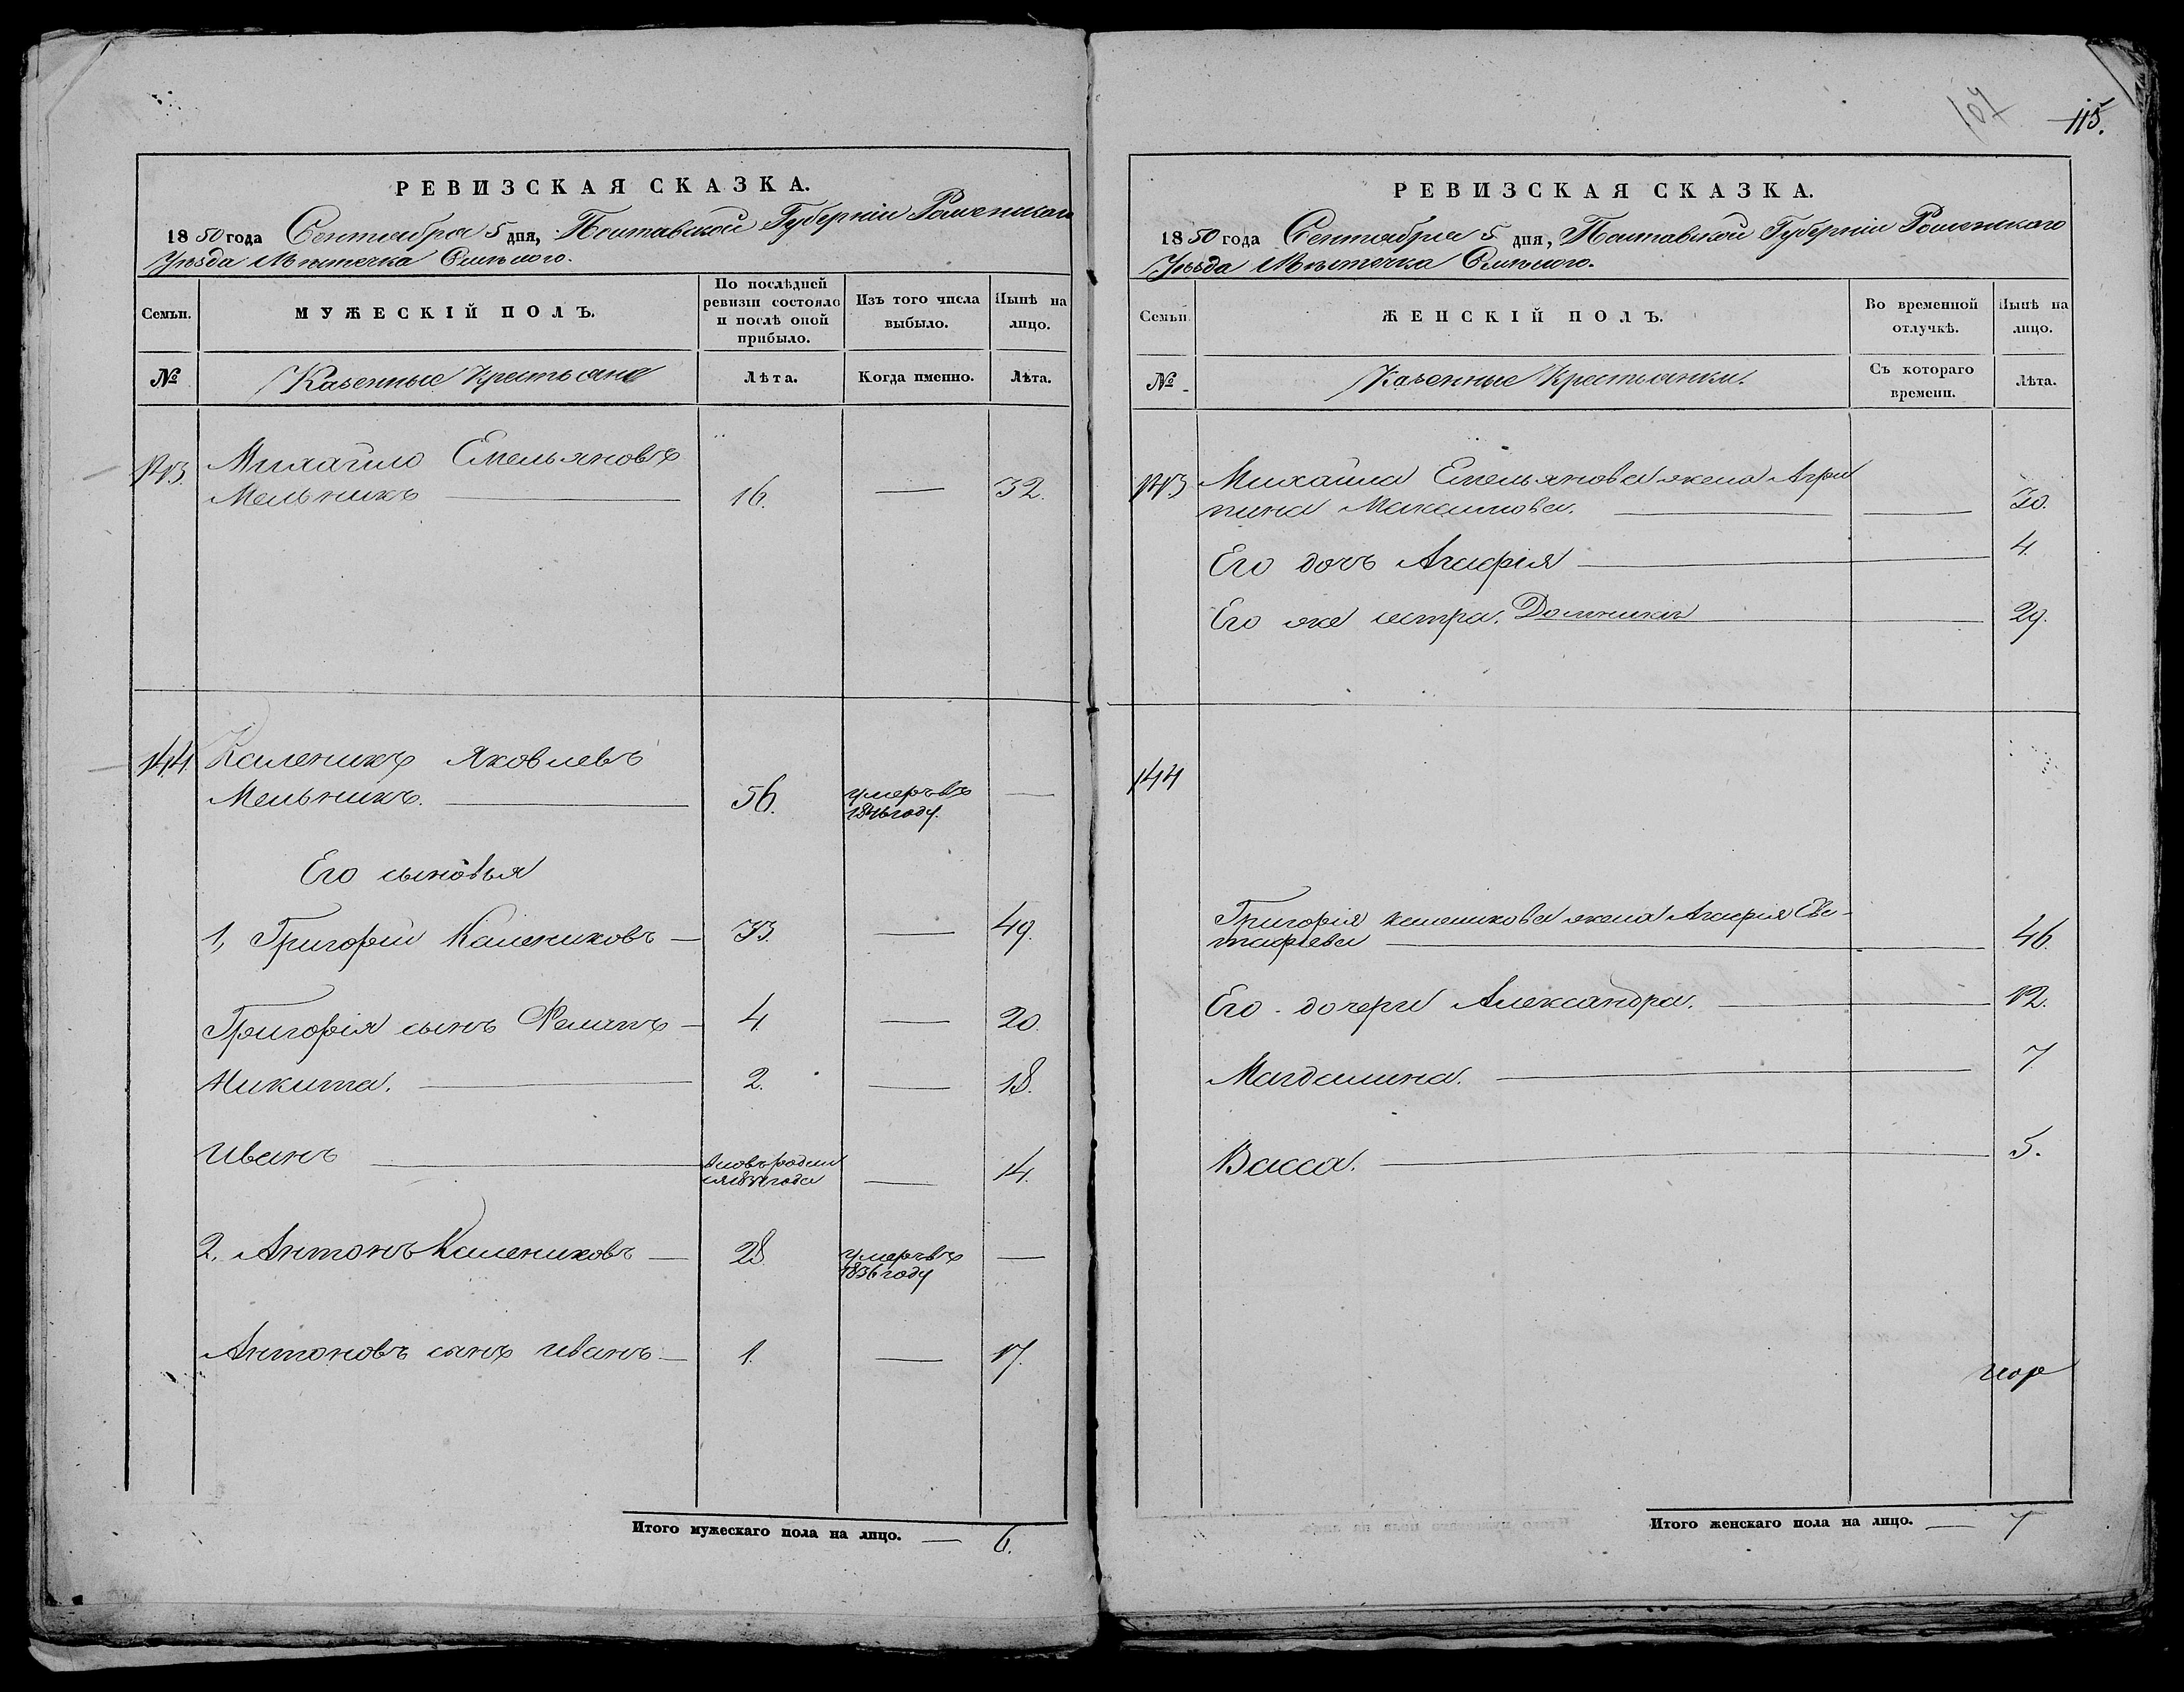 107
115.
РЕВИЗСКАЯ СКАЗКА.
1850 года Сентября 5 дня, Полтавской Губерніи Роменскаго
Уѣзда Мѣстечка Смѣлого.
Семьи.
МУЖЕСКІЙ ПОЛЪ.
По послѣдней
ревизіи состояло
и послѣ оной
прибыло.
Изъ того числа
выбыло.
Нынѣ на
лицо.
№
Казенные Крестьяне
Лѣта.
Когда именно.
Лѣта.
143. Михайло Емельяновъ
Мельникъ 16. 32.
144. Каленикъ Яковлевъ
Мельникъ. 56. умеръ въ
1846 году.
Его сыновья
1, Григорій Калениковъ 33. 49.
Григорія сынъ 4 20.
Никита. 2. 18.
Иванъ 14.
2. Антонъ Калениковъ 28 умеръ въ
1836 году
Антоновъ сынъ Иванъ 1. 17.
Итого мужескаго пола на лицо. 6.
РЕВИЗСКАЯ СКАЗКА.
1850 года Сентября 5 дня, Полтавской Губерніи Роменскаго
Уѣзда Мѣстечка Смѣлого.
Семьи
ЖЕНСКІЙ ПОЛЪ.
Во временной
отлучкѣ.
Нынѣ на
лицо.
№
Казенные Крестьянки.
Съ котораго
времени.
Лѣта.
143 Михайла Емельянова жена Агри
пина Максимова. 30.
Его дочь Агафія 4.
Его же сестра. Домникія 29.
144
Григорія Каленикова жена Агафія Евс-
тафіева 46.
Его дочери Александра. 12.
Магдалина. 7.
Васса. 5.
Итого женскаго пола на лицо. 7